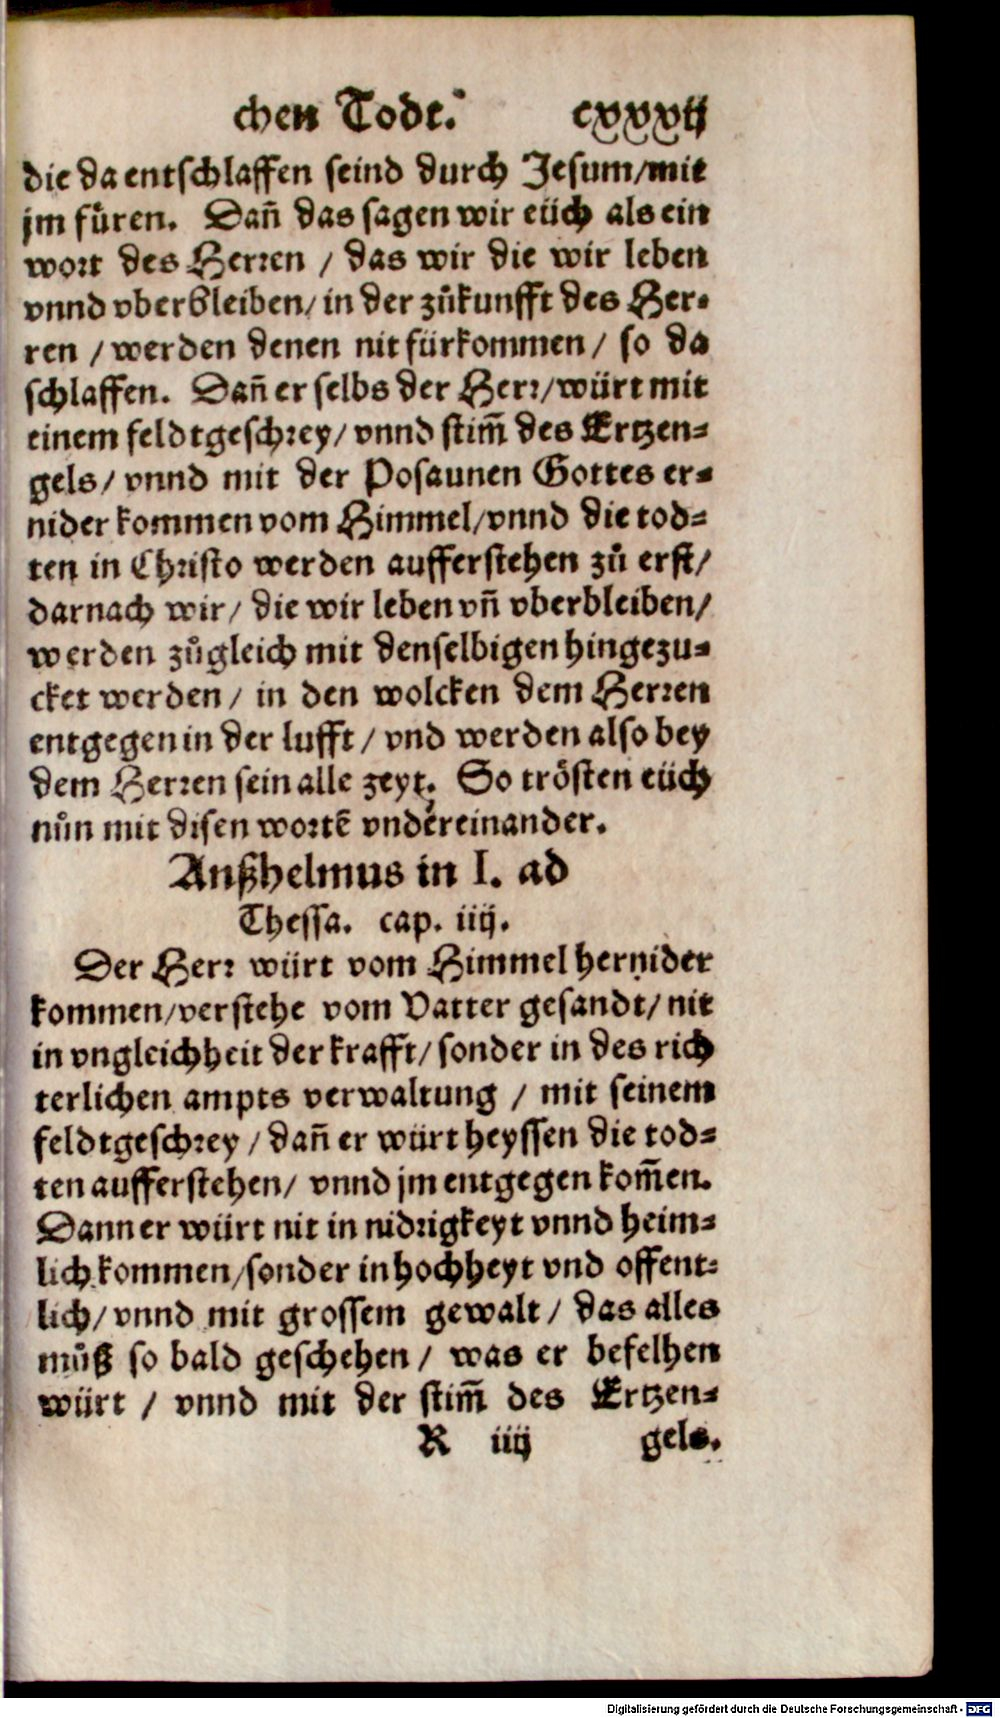 chen Todt. cxxxvij
die da entschlaffen seind durch Jesum/mit
jm fuͤren. Dañ das sagen wir eüch als ein
wort des Herren / das wir die wir leben
vnnd vberbleiben/ in der zuͦkunfft des Her-
ren / werden denen nit fürkommen / so da
schlaffen. Dañ er selbs der Herr/würt mit
einem feldtgeschrey/ vnnd stim̃ des Ertzen-
gels/ vnnd mit der Posaunen Gottes er-
nider kommen vom Himmel/vnnd die tod-
ten in Christo werden aufferstehen zuͦ erst/
darnach wir/ die wir leben vñ vberbleiben/
werden zuͦgleich mit denselbigen hingezu-
cket werden/ in den wolcken dem Herren
entgegen in der lufft / vnd werden also bey
dem Herren sein alle zeyt. So trösten eüch
nuͦn mit disen wortẽ vndereinander.
Anßhelmus in I. ad
Thessa. cap. iiij.
Der Herr würt vom Himmel hernider
kommen/verstehe vom Vatter gesandt/ nit
in vngleichheit der krafft/ sonder in des rich
terlichen ampts verwaltung / mit seinem
feldtgeschrey / dañ er würt heyssen die tod-
ten aufferstehen/ vnnd jm entgegen kom̃en.
Dann er würt nit in nidrigkeyt vnnd heim-
lich kommen/sonder in hochheyt vnd offent-
lich/ vnnd mit grossem gewalt / das alles
muͦß so bald geschehen / was er befelhen
würt / vnnd mit der stim̃ des Ertzen-
R iiij gels.
Digitalisierung gefördert durch die Deutsche Forschungsgemeinschaft - DFG